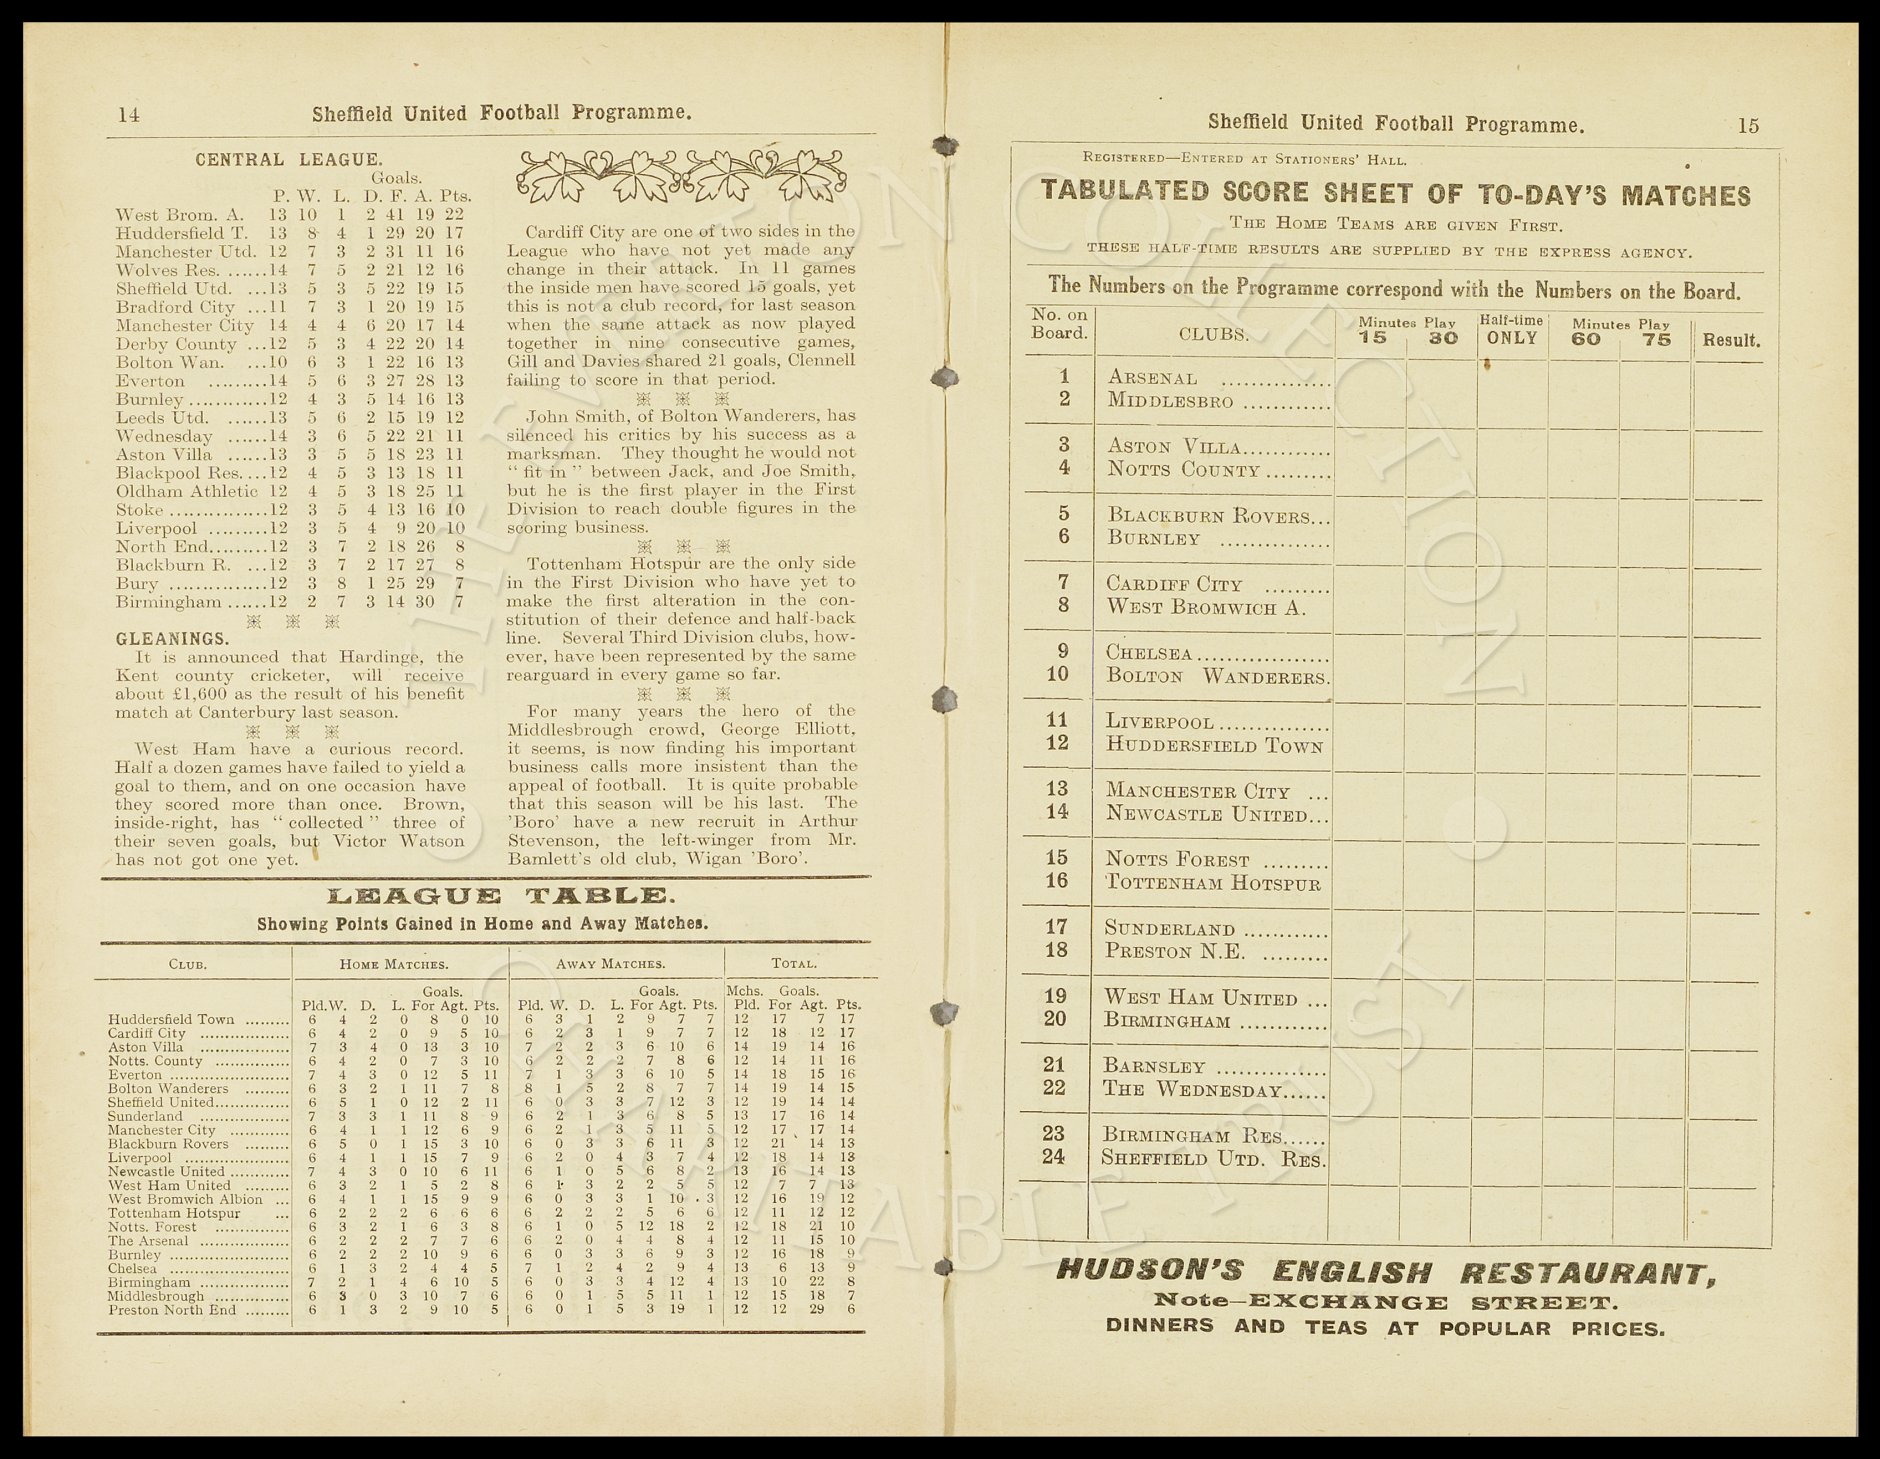 14
Sheffield United Football Programme.
CENTRAL LEAGUE.
Goals.
P. W. L. D. F. A. Pts.
West Brom. A. 13 10 1 2 41 19 22
Huddersfield T. 13 8 4 1 29 20 17
Manchester Utd. 12 7 3 2 31 11 16
Wolves Res. ......14 7 5 2 21 12 16
Sheffield Utd. ...13 5 3 5 22 19 15
Bradford City ...11 7 3 1 20 19 15
Manchester City 14 4 4 6 20 17 14
Derby County ...12 5 3 4 22 20 14
Bolton Wan. ...10 6 3 1 22 16 13
Everton .........14 5 6 3 27 28 13
Burnley............12 4 3 5 14 16 13
Leeds Utd. ......13 5 6 2 15 19 12
Wednesday ......14 3 6 5 22 21 11
Aston Villa ......13 3 5 5 18 23 11
Blackpool Res....12 4 5 3 13 18 11
Oldham Athletic 12 4 5 3 18 25 11
Stoke...............12 3 5 4 13 16 10
Liverpool .........12 3 5 4 9 20 10
North End.........12 3 7 2 18 26 8
Blackburn R. ...12 3 7 2 17 27 8
Bury ...............12 3 8 1 25 29 7
Birmingham ......12 2 7 3 14 30 7
GLEANINGS.
It is announced that Hardinge, the
Kent county cricketer, will receive
about £1,600 as the result of his benefit
match at Canterbury last season.
West Ham have a curious record.
Half a dozen games have failed to yield a
goal to them, and on one occasion have
they scored more than once. Brown,
inside-right, has "collected" three of
their seven goals, but Victor Watson
has not got one yet.
Cardiff City are one of two sides in the
League who have not yet made any
change in their attack. In 11 games
the inside men have scored 15 goals, yet
this is not a club record, for last season
when the same attack as now played
together in nine consecutive games,
Gill and Davies shared 21 goals, Clennell
failing to score in that period.
John Smith, of Bolton Wanderers, has
silenced his critics by his success as a
marksman. They thought he would not
"fit in" between Jack, and Joe Smith,
but he is the first player in the First
Division to reach double figures in the
scoring business.
Tottenham Hotspur are the only side
in the First Division who have yet to
make the first alteration in the con-
stitution of their defence and half-back
line. Several Third Division clubs, how-
ever, have been represented by the same
rearguard in every game so far.
For many years the hero of the
Middlesbrough crowd, George Elliott,
it seems, is now finding his important
business calls more insistent than the
appeal of football. It is quite probable
that this season will be his last. The
'Boro' have a new recruit in Arthur
Stevenson, the left-winger from Mr.
Bamlett's old club, Wigan 'Boro'.
LEAGUE TABLE.
Showing Points Gained in Home and Away Matches.
CLUB. HOME MATCHES. AWAY MATCHES. TOTAL.
Goals. Goals. Mchs. Goals.
Pld.W. D. L. For Agt. Pts. Pld. W. D. L. For Agt. Pts. Pld. For Agt. Pts.
Huddersfield Town ......... 6 4 2 0 8 0 10 6 3 1 2 9 7 7 12 17 7 17
Cardiff City .................. 6 4 2 0 9 5 10 6 2 3 1 9 7 7 12 18 12 17
Aston Villa .................. 7 3 4 0 13 3 10 7 2 2 3 6 10 6 14 19 14 16
Notts. County ............... 6 4 2 0 7 3 10 6 2 2 2 7 8 6 12 14 11 16
Everton ........................ 7 4 3 0 12 5 11 7 1 3 3 6 10 5 14 18 15 16
Bolton Wanderers ......... 6 3 2 1 11 7 8 8 1 5 2 8 7 7 14 19 14 15
Sheffield United............... 6 5 1 0 12 2 11 6 0 3 3 7 12 3 12 19 14 14
Sunderland .................. 7 3 3 1 11 8 9 6 2 1 3 6 8 5 13 17 16 14
Manchester City ............ 6 4 1 1 12 6 9 6 2 1 3 5 11 5 12 17 17 14
Blackburn Rovers ......... 6 5 0 1 15 3 10 6 0 3 3 6 11 3 12 21 14 13
Liverpool ..................... 6 4 1 1 15 7 9 6 2 0 4 3 7 4 12 18 14 13
Newcastle United............ 7 4 3 0 10 6 11 6 1 0 5 6 8 2 13 16 14 13
West Ham United ......... 6 3 2 1 5 2 8 6 1 3 2 2 5 5 12 7 7 13
West Bromwich Albion ... 6 4 1 1 15 9 9 6 0 3 3 1 10 3 12 16 19 12
Tottenham Hotspur ... 6 2 2 2 6 6 6 6 2 2 2 5 6 6 12 11 12 12
Notts. Forest ............... 6 3 2 1 6 3 8 6 1 0 5 12 18 2 12 18 21 10
The Arsenal .................. 6 2 2 2 7 7 6 6 2 0 4 4 8 4 12 11 15 10
Burnley ........................ 6 2 2 2 10 9 6 6 0 3 3 6 9 3 12 16 18 9
Chelsea ........................ 6 1 3 2 4 4 5 7 1 2 4 2 9 4 13 6 13 9
Birmingham .................. 7 2 1 4 6 10 5 6 0 3 3 4 12 4 13 10 22 8
Middlesbrough ............... 6 3 0 3 10 7 6 6 0 1 5 5 11 1 12 15 18 7
Preston North End ......... 6 1 3 2 9 10 5 6 0 1 5 3 19 1 12 12 29 6
Sheffield United Football Programme.
15
REGISTERED—ENTERED AT STATIONERS' HALL.
TABULATED SCORE SHEET OF TO-DAY'S MATCHES
THE HOME TEAMS ARE GIVEN FIRST.
THESE HALF-TIME RESULTS ARE SUPPLIED BY THE EXPRESS AGENCY.
The Numbers on the Programme correspond with the Numbers on the Board.
No. on Board. CLUBS. Minutes Play 15 30 Half-time ONLY Minutes Play 60 75 Result.
1 ARSENAL ...............
2 MIDDLESBRO ............
3 ASTON VILLA............
4 NOTTS COUNTY.........
5 BLACKBURN ROVERS...
6 BURNLEY ...............
7 CARDIFF CITY .........
8 WEST BROMWICH A.
9 CHELSEA..................
10 BOLTON WANDERERS.
11 LIVERPOOL...............
12 HUDDERSFIELD TOWN
13 MANCHESTER CITY ...
14 NEWCASTLE UNITED...
15 NOTTS FOREST .........
16 TOTTENHAM HOTSPUR
17 SUNDERLAND ............
18 PRESTON N.E. .........
19 WEST HAM UNITED ...
20 BIRMINGHAM ............
21 BARNSLEY ...............
22 THE WEDNESDAY......
23 BIRMINGHAM RES......
24 SHEFFIELD UTD. RES.
HUDSON'S ENGLISH RESTAURANT,
Note—EXCHANGE STREET.
DINNERS AND TEAS AT POPULAR PRICES.
© THE EVERTON COLLECTION © CHARITABLE TRUST